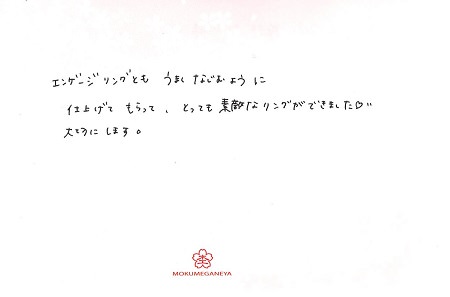 エンゲージリングとも うまくなじむように
仕上げて もらって、とっても素敵なリングができました♡
大切にします。
MOKUMEGANEYA